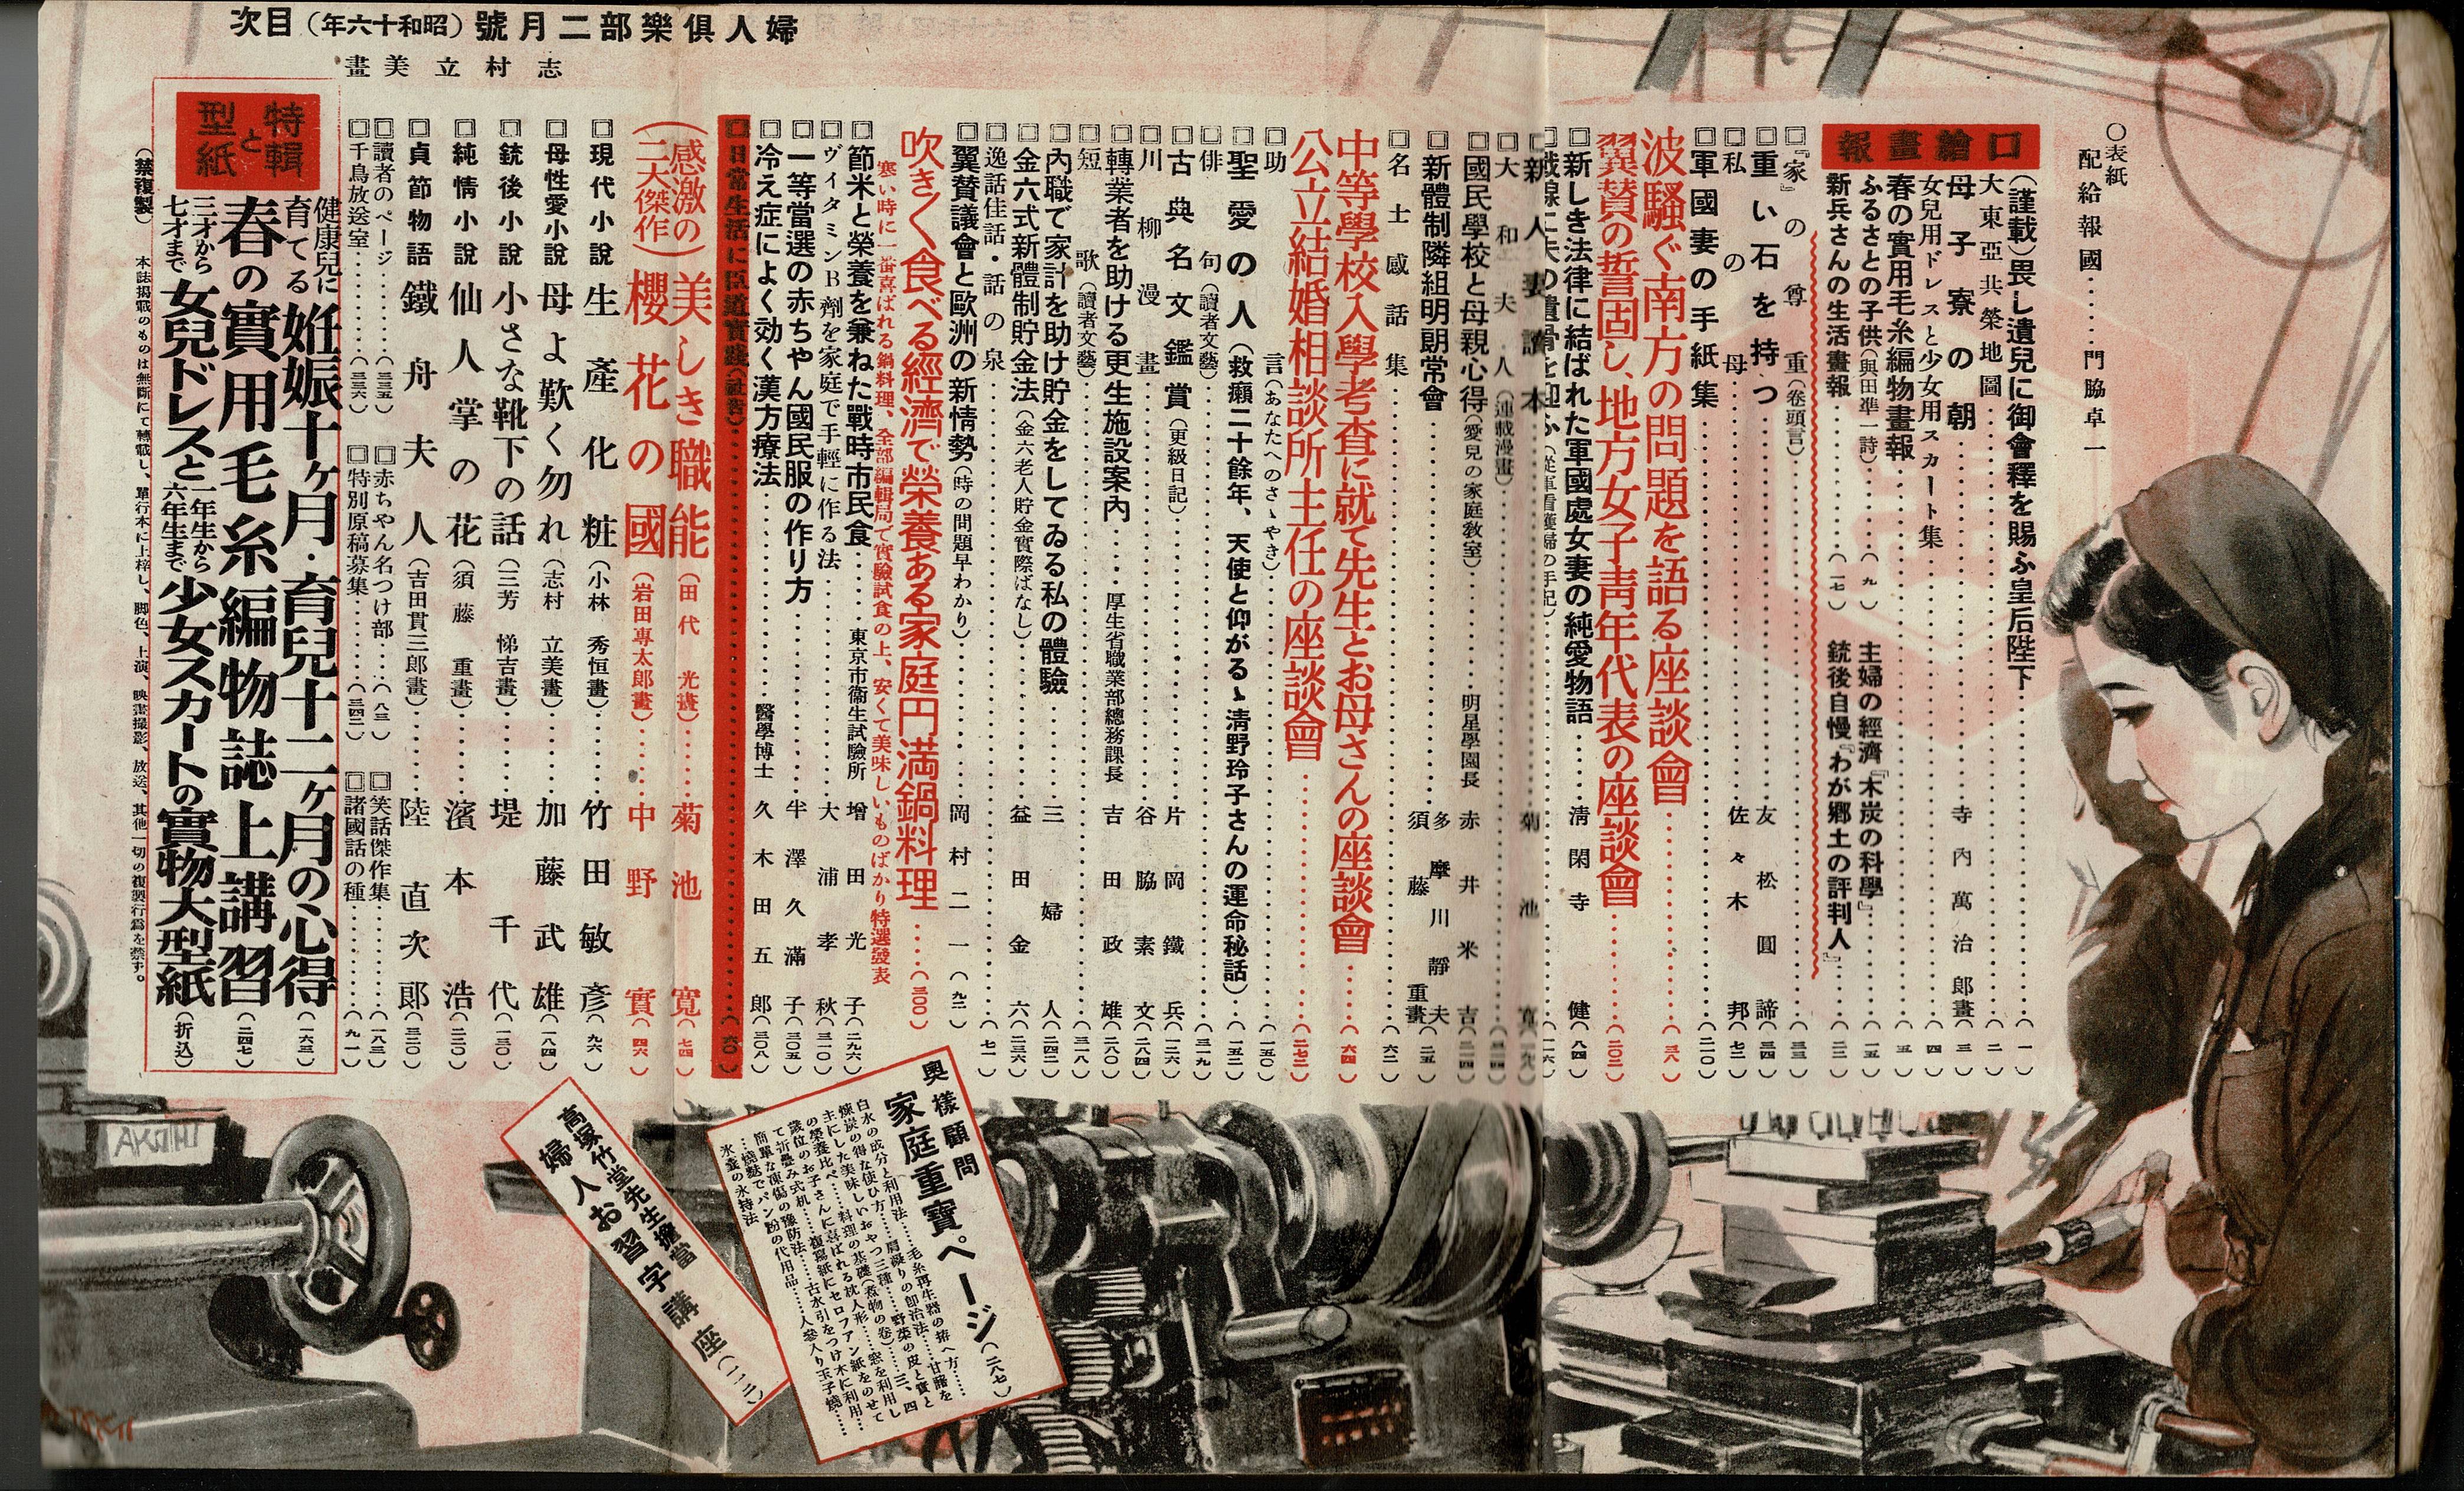 婦人倶樂部二月號（昭和十六年）目次
志村立美畫
〇表紙
配給報國……門脇卓一
口繪畫報
（謹載）畏し遺兒に御會釋を賜ふ皇后陛下……（一）
大東亞共榮地圖……（二）
母子寮の朝……寺内萬治郎畫（三）
女兒用ドレスと少女用スカート集……（四）
春の實用毛糸編物畫報……（五）
ふるさとの子供（與田凖一詩）……（九）
主婦の經濟『木炭の科學』……（一五）
新兵さんの生活畫報……（一七）
銃後自慢『わが郷土の評判人』……（二三）
『家』の尊重（卷頭言）……（三三）
□重い石を持つ……友松圓諦（三四）
□私の母……佐々木邦（七二）
□軍國妻の手紙集……（二一〇）
波騷ぐ南方の問題を語る座談會……（三八）
翼賛の誓固し、地方女子靑年代表の座談會……（二〇二）
□新しき法律に結ばれた軍國處女妻の純愛物語……淸閑寺健（八四）
□戰線に夫の遺骨を迎ふ（從軍看護婦の手記）
□新人妻讀本……菊池寛
□大和夫人（連載漫畫）
□國民學校と母親心得（愛兒の家庭敎室）……明星學園長 赤井米吉（二一四）
□新體制隣組明朗常會……多摩川靜夫 須藤重畫（二五）
□名士感話集……（六二）
中等學校入學考査に就て先生とお母さんの座談會……（六四）
公立結婚相談所主任の座談會……（二七二）
□助言（あなたへのさゝやき）……（一五〇）
□聖愛の人（救癩二十餘年、天使と仰がるゝ淸野玲子さんの運命秘話）……（一五二）
□俳句（讀者文藝）……（三一九）
□古典名文鑑賞（更級日記）……片岡鐵兵（一二六）
□川柳漫畫……谷脇素文（二八四）
□轉業者を助ける更生施設案内……厚生省職業部總務課長 吉田政雄（二八〇）
□短歌（讀者文藝）……（三一八）
□内職で家計を助け貯金をしてゐる私の體驗……三婦人（二四二）
□金六式新體制貯金法（金六老人貯金實際ばなし）……益田金六（二三六）
□逸話佳話・話の泉……（七一）
□翼賛議會と歐洲の新情勢（時の問題早わかり）……岡村二一（九二）
吹きく食べる經濟で榮養ある家庭円満鍋料理……（三〇〇）
寒い時に一番喜ばれる鍋料理、全部編輯局で實驗試食の上、安くて美味しいものばかり特選發表
□節米と榮養を兼ねた戰時市民食……東京市衞生試驗所 增田光子（二九六）
□ヴィタミンB劑を家庭で手輕に作る法……大浦孝秋（三一〇）
□一等當選の赤ちゃん國民服の作り方……半澤久滿子（三〇五）
□冷え症によく効く漢方療法……醫學博士 久木田五郎（三〇八）
□日常生活に臣道實踐（社告）……（六〇）
（感激の二大傑作）
美しき職能（田代光畫）……菊池寛（七四）
櫻花の國（岩田專太郎畫）……中野實（四六）
□現代小說 生產化粧（小林秀恒畫）……竹田敏彥（九六）
□母性愛小說 母よ歎く勿れ（志村立美畫）……加藤武雄（一八四）
□銃後小說 小さな靴下の話（三芳悌吉畫）……堤千代（一三〇）
□純情小說 仙人掌の花（須藤重畫）……濱本浩（二二〇）
□貞節物語 鐵舟夫人（吉田貫三郎畫）……陸直次郎（三二〇）
□讀者のページ……（三三五）
□赤ちやん名つけ部……（八三）
□笑話傑作集……（一八三）
□千鳥放送室……（三三六）
□特別原稿募集……（三四二）
□諸國話の種……（九一）
特輯と型紙
健康兒に育てる 姙娠十ヶ月・育兒十二ヶ月の心得（一六三）
春の實用毛糸編物誌上講習（二四七）
三才から七才まで女兒ドレスと一年生から六年生まで少女スカートの實物大型紙（折込）
（禁複製）本誌掲載のものは無斷にて轉載し、單行本に上梓し、脚色、上演、映畫撮影、放送、其他一切の複製行爲を禁ず。
奥樣顧問
家庭重寶ページ（二八七）
白水の成分と利用法……毛糸再生器の揃へ方……甘藷を
煉炭の得な使ひ方……肩凝りの卽治法……野菜の皮と實と
主にした美味しいおやつ三種……三、四
の榮養比べ……料理の基礎（煮物の卷）……窓を利用し
歲位のお子さんに喜ばれる枕人形……セロファン紙をのせて
て折疊み式机……複寫紙に古水引をつけ木に利用……
簡單な凍傷の豫防法……人參入り玉子燒……
……燒麩でパン粉の代用品……
氷嚢の永持法
高塚竹堂先生擔當
婦人お習字講座（一二三）